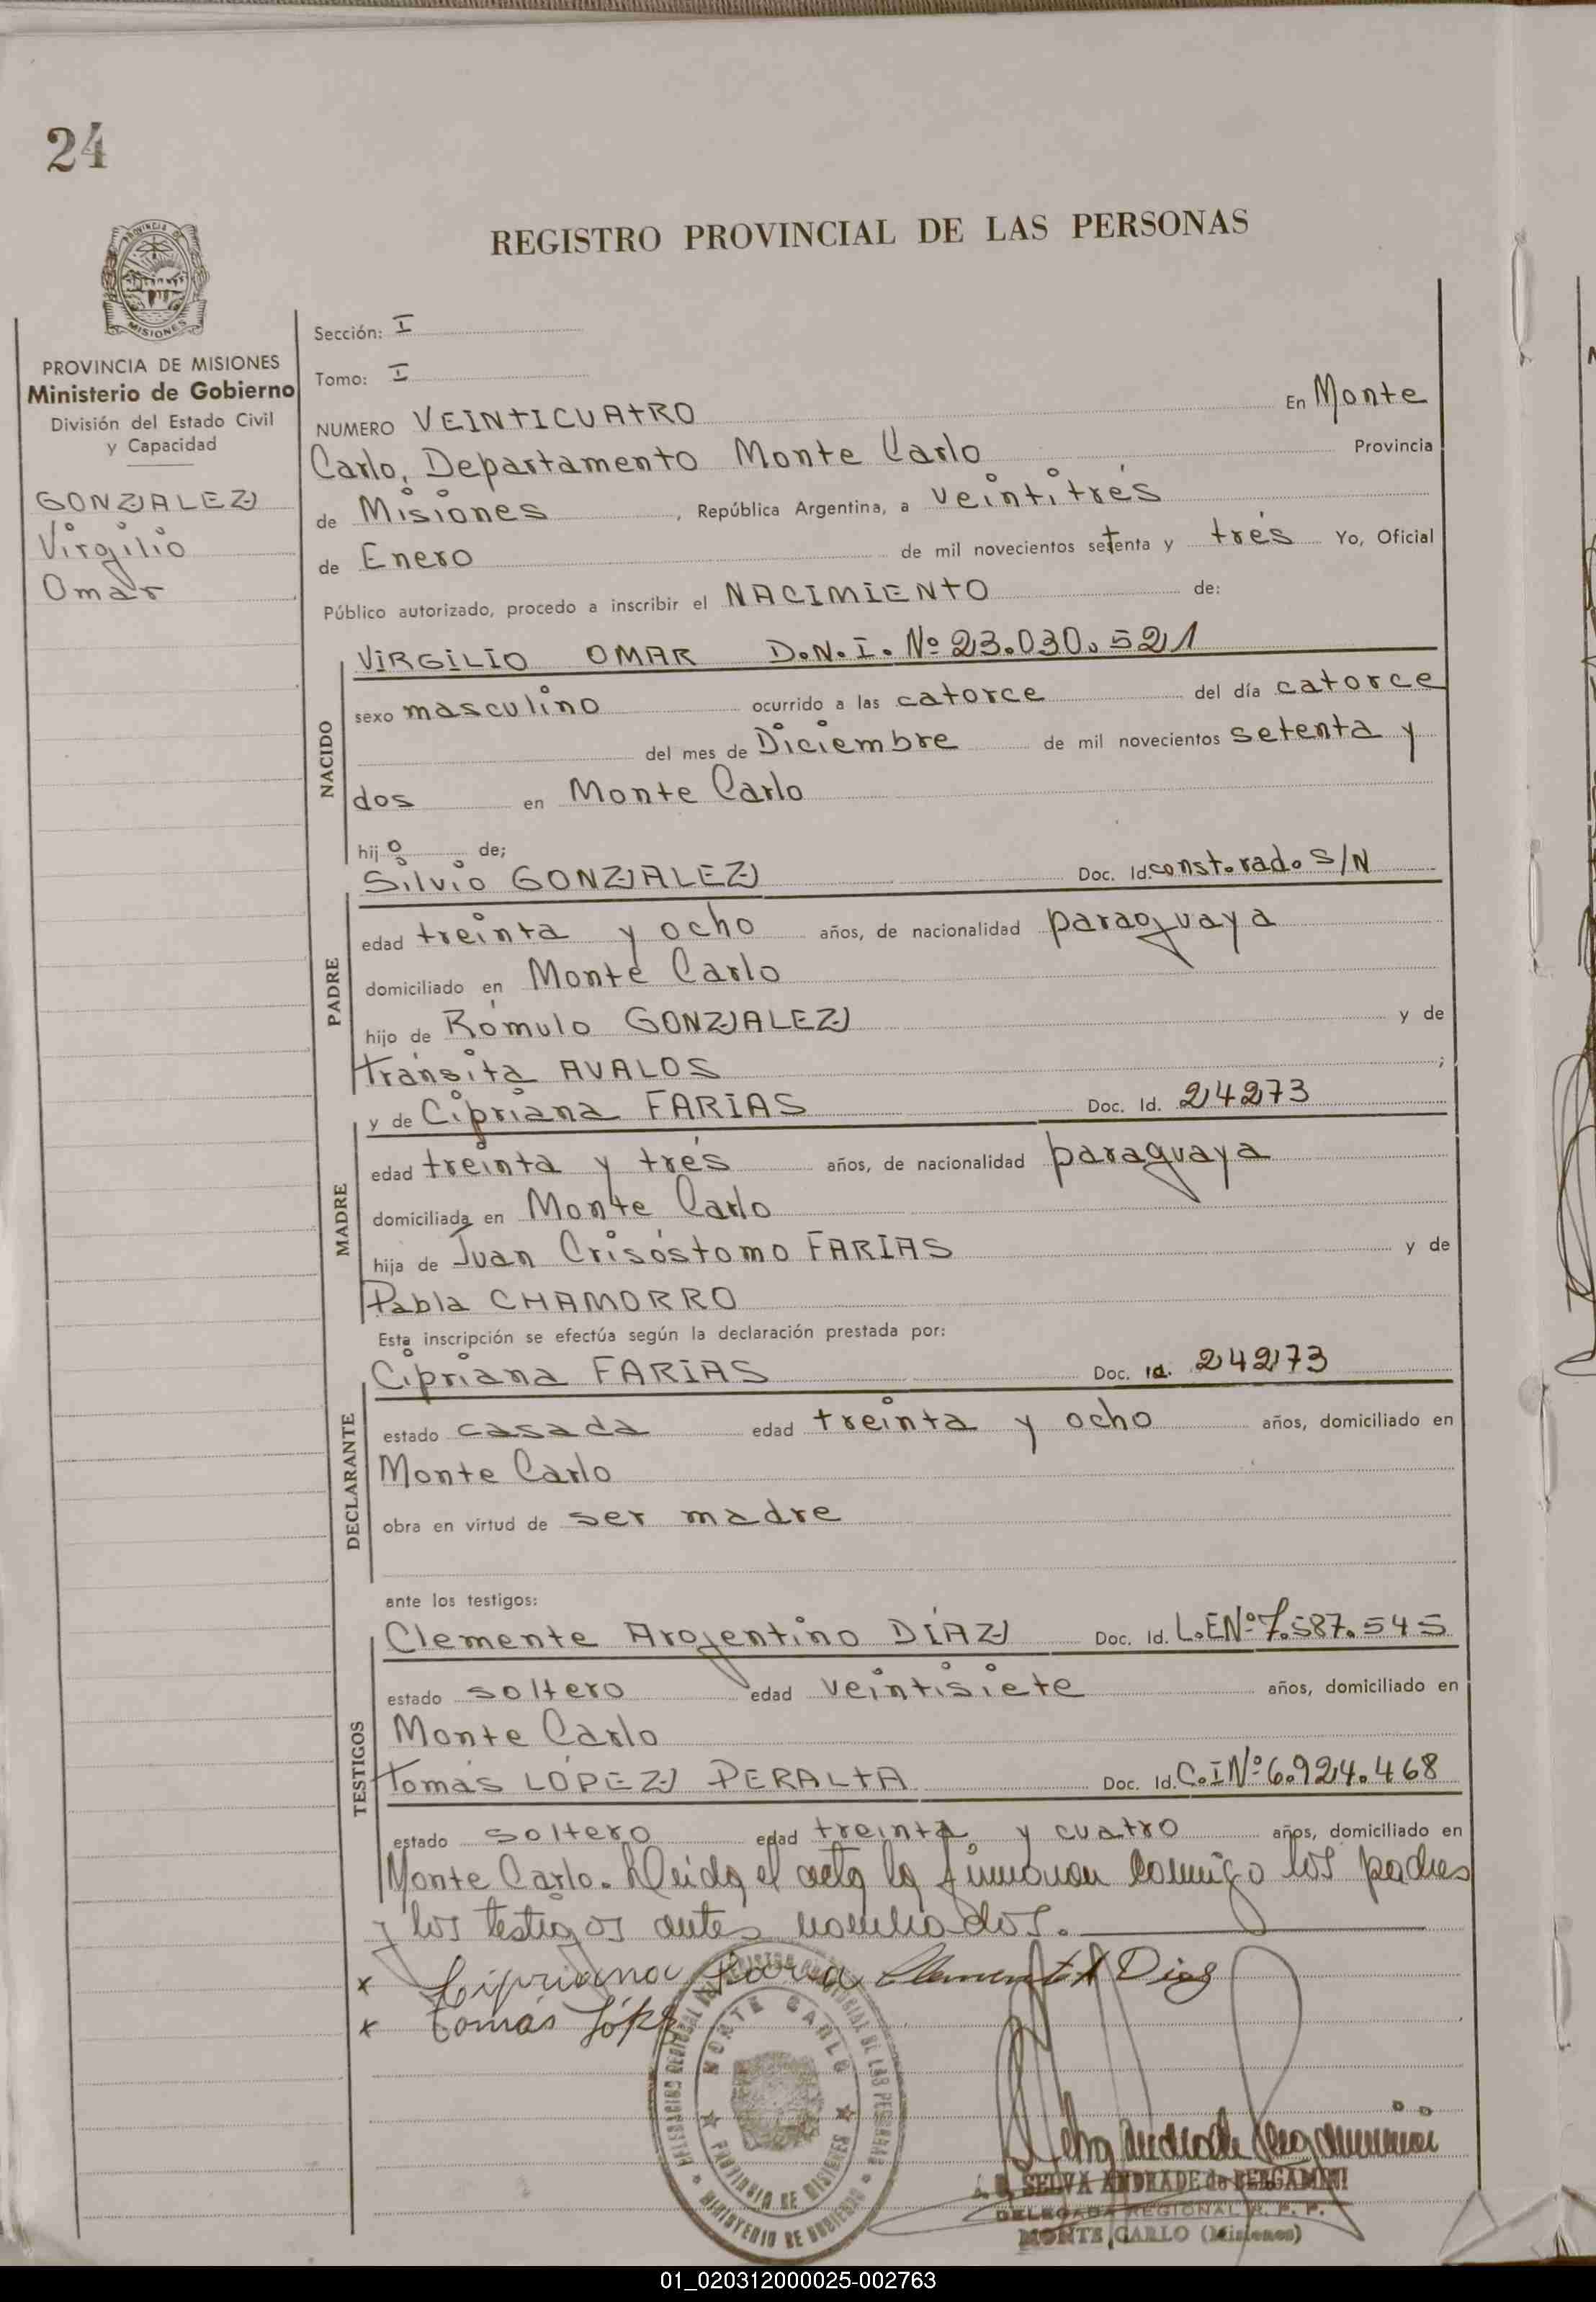 24
REGISTRO PROVINCIAL DE LAS PERSONAS
PROVINCIA DE MISIONES
Ministerio de Gobierno
División del Estado Civil
y Capacidad
GONZALEZ
Virgilio
Omar
Sección: I
Tomo: I
NUMERO VEINTICUATRO En Monte
Carlo, Departamento Monte Carlo Provincia
de Misiones, República Argentina, a veintitrés
de Enero de mil novecientos setenta y trés Yo, Oficial
Público autorizado, procedo a inscribir el NACIMIENTO de:
NACIDO
VIRGILIO OMAR D.N.I. Nº 23.030.521
sexo masculino ocurrido a las catorce del día catorce
del mes de Diciembre de mil novecientos setenta y
dos en Monte Carlo
hijo de;
PADRE
Silvio GONZALEZ Doc. Id. const.rad. S/N
edad treinta y ocho años, de nacionalidad paraguaya
domiciliado en Monte Carlo
hijo de Rómulo GONZALEZ y de
Tránsita AVALOS ;
MADRE
y de Cipriana FARIAS Doc. Id. 24273
edad treinta y trés años, de nacionalidad paraguaya
domiciliada en Monte Carlo
hija de Juan Crisóstomo FARIAS y de
Pabla CHAMORRO
Esta inscripción se efectúa según la declaración prestada por:
DECLARANTE
Cipriana FARIAS Doc. Id. 24273
estado casada edad treinta y ocho años, domiciliado en
Monte Carlo
obra en virtud de ser madre
ante los testigos:
TESTIGOS
Clemente Argentino DÍAZ Doc. Id. L.E Nº 7.587.545
estado soltero edad veintisiete años, domiciliado en
Monte Carlo
Tomás LÓPEZ PERALTA Doc. Id. C.I Nº 6.924.468
estado soltero edad treinta y cuatro años, domiciliado en
Monte Carlo. Leida el acta la firman conmigo los padres
y los testigos antes nombrados.
x Cipriana Faria Clemente A Diaz
x Tomás Lópz
MONTE CARLO
PROVINCIA DE MISIONES
MINISTERIO DE GOBIERNO
SELVA ANDRADE de BERGAMINI
DELEGADA REGIONAL R. P. P.
MONTE CARLO (Misiones)
01_020312000025-002763